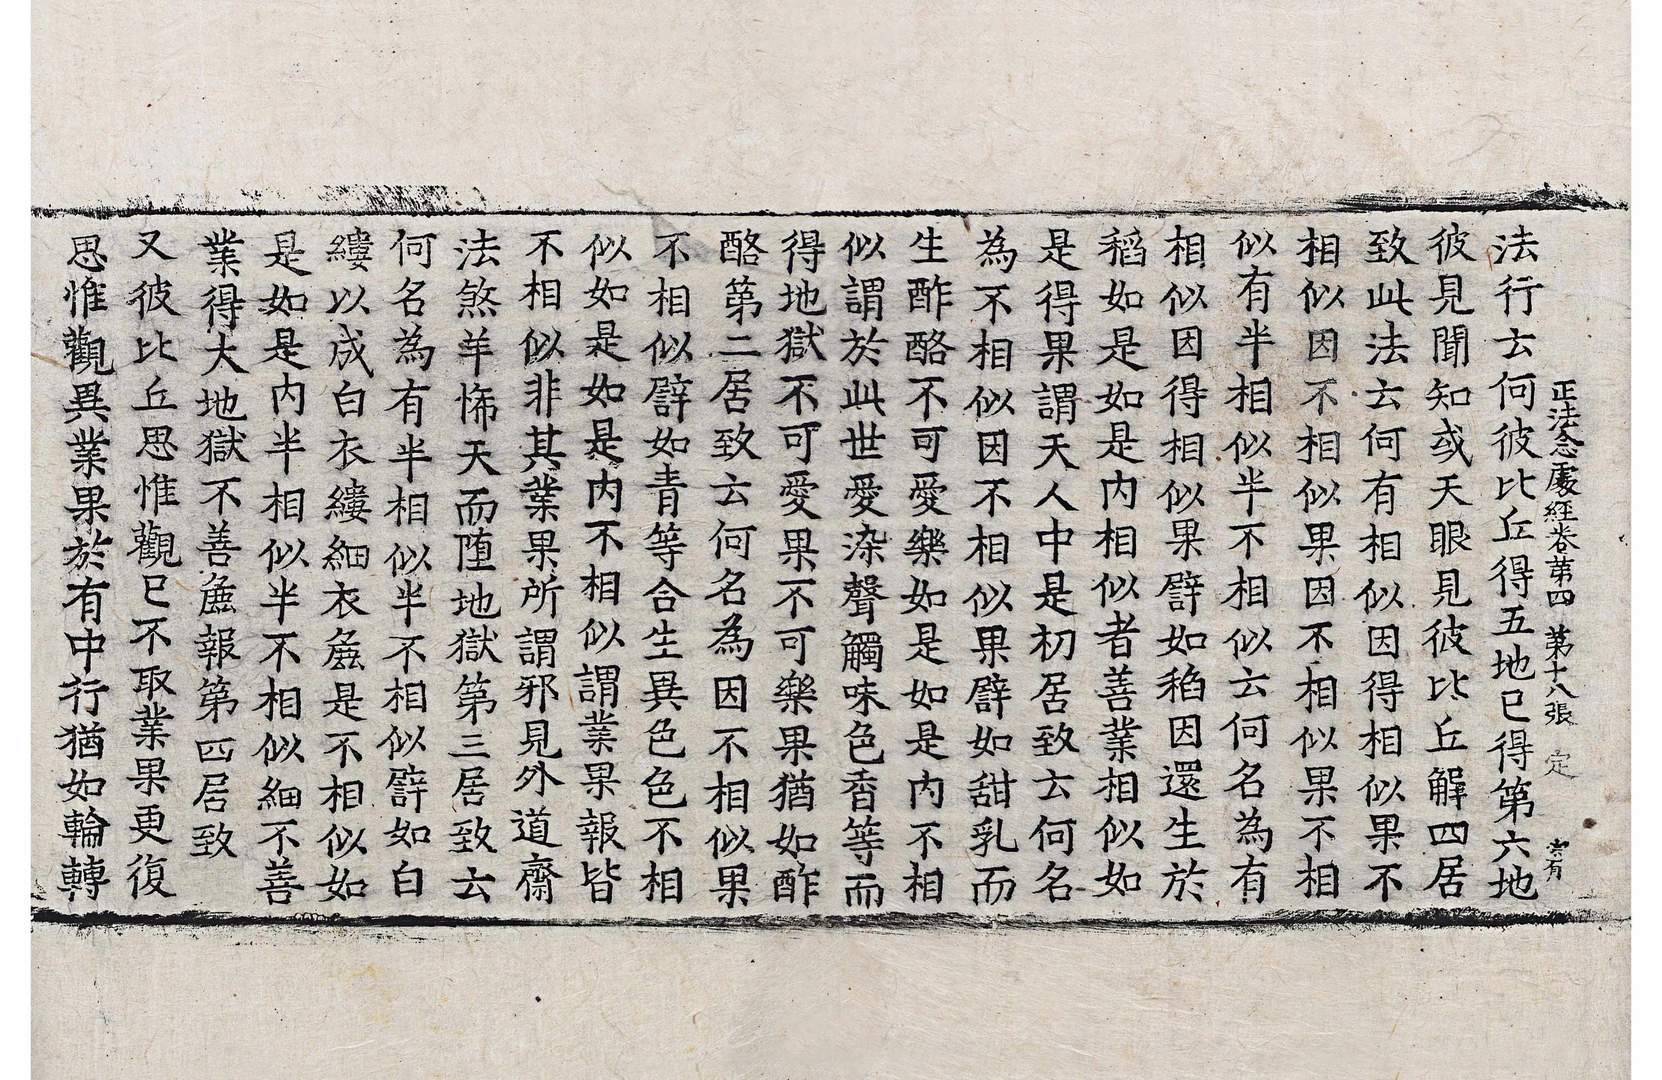 正法念處經卷第四 第十八張 定
法行云何彼比丘得五地已得第六地
彼見聞知或天眼見彼比丘解四居
致此法云何有相似因得相似果不
相似因不相似果因不相似果不相
似有半相似半不相似云何名為有
相似因得相似果譬如稻因還生於
稻如是如是內相似者善業相似如
是得果謂天人中是初居致云何名
為不相似因不相似果譬如甜乳而
生酢酪不可愛樂如是如是內不相
似謂於此世愛愛染聲觸味色香等而
得地獄不可愛果不可樂果猶如酢
酪第二居致云何名為因不相似果
不相似譬如青等合生異色色不相
似如是如是內不相似謂業果報皆
不相似非其業果所謂邪見外道齋
法煞羊悕天而堕地獄第三居致云
何名為有半相似半不相似譬如白
縷以成白衣縷細衣麁是不相似如
是如是內半相似半不相似細不善
業得大地獄不善麁報第四居致
又彼比丘思惟觀已不取業果更復
思惟觀異業果於有中行猶如輪轉